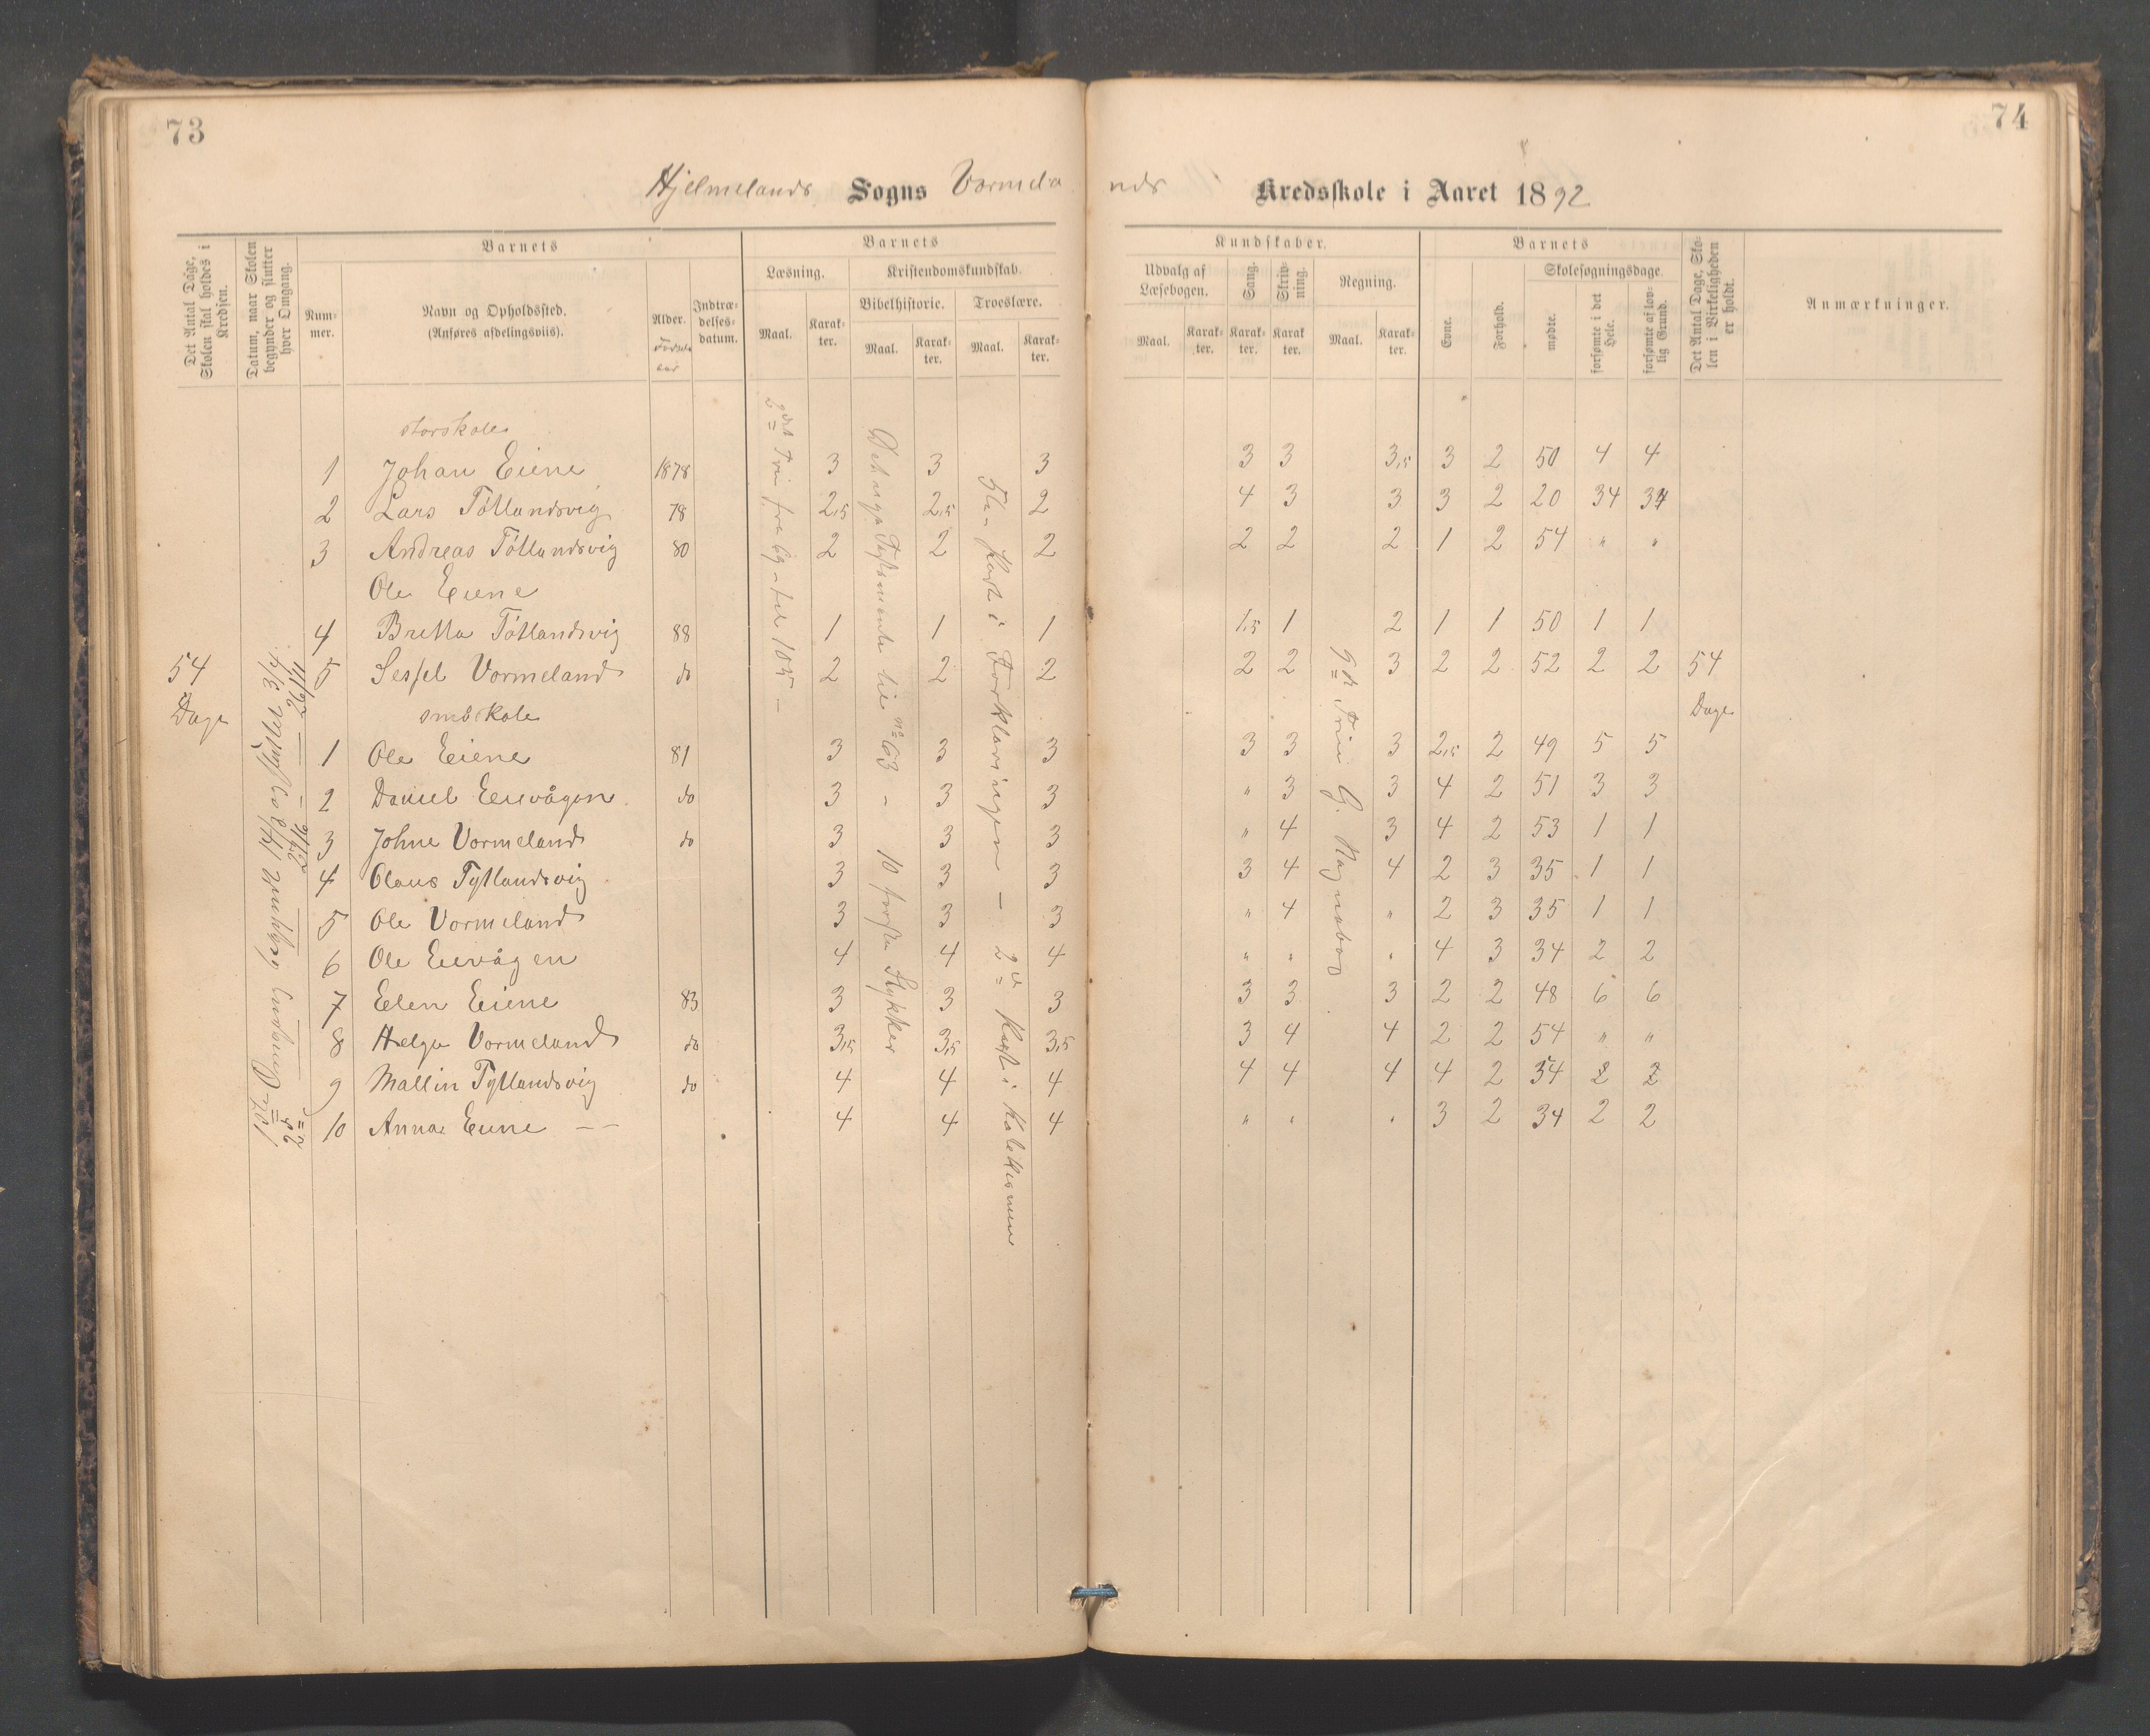 73
74
Hjelmelands Sogns Vormela
nds Kredsskole i Aaret 1892
Det Antal Dage, Skolen skal holdes i Kredsen.
Datum, naar Skolen begynder og slutter hver Omgang.
Barnets
Num-mer.
Navn og Opholdssted.
(Anføres afdelingsviis).
Alder.
Fødsels aar
Indtræ-delses-datum.
Barnets
Læsning.
Kristendomskundskab.
Bibelhistorie.
Troeslære.
Maal.
Karak-ter.
Maal.
Karak-ter.
Maal.
Karak-ter.
Kundskaber.
Udvalg af Læsebogen.
Sang.
Skriv-ning.
Regning.
Maal.
Karak-ter.
Karak-ter.
Karak ter.
Maal.
Karak-ter.
Barnets
Evne.
Forhold.
Skolesøgningsdage.
mødte.
forsømte i det Hele.
forsømte af lov-lig Grund.
Det Antal Dage, Sko-len i Virkeligheden er holdt.
Anmærkninger.
storskole
1 Johan Eiene 1878 3 3 3 3 3 3,5 3 2 50 4 4
2 Lars Tøtlandsvig 78 2,5 2,5 2 4 3 3 3 2 20 34 34
3 Andreas Tøtlandsvig 80 2 2 2 2 2 2 1 2 54 " "
Ole Eiene
4 Britta Tøtlandsvig 88 1 1 1 1,5 1 2 1 1 50 1 1
54 5 Sessel Vormeland do 2 2 2 2 2 3 2 2 52 2 2 54
Dage småskole Dage
1 Ole Eiene 81 3 3 3 3 3 3 2,5 2 49 5 5
2 Daniel Eievågen do 3 3 3 " 3 3 4 2 51 3 3
3 Johne Vormeland do 3 3 3 " 4 3 4 2 53 1 1
4 Olaus Tytlandsvig 3 3 3 3 4 4 2 3 35 1 1
5 Ole Vormeland 3 3 3 " 4 " 2 3 35 1 1
6 Ole Eievågen 4 4 4 " " " 4 3 34 2 2
7 Elen Eiene 83 3 3 3 3 3 3 2 2 48 6 6
8 Helga Vormeland do 3,5 3,5 3,5 3 4 4 2 2 54 " "
9 Mallin Tytlandsvig do 4 4 4 4 4 4 4 2 34 2 2
10 Anna Eiene — — 4 4 4 " " " 3 2 34 2 2
1ste Omgang begyndt 14/3 og sluttet 3/4
2d 27/6 — 26/11
2det Trin fra 69 - til 105 -
Det nye Testamente lie no 63 - 10 første Stykker
5te Part i Forklaringen — 2d Part i Katekismen
9de Trin G. Ragnabo